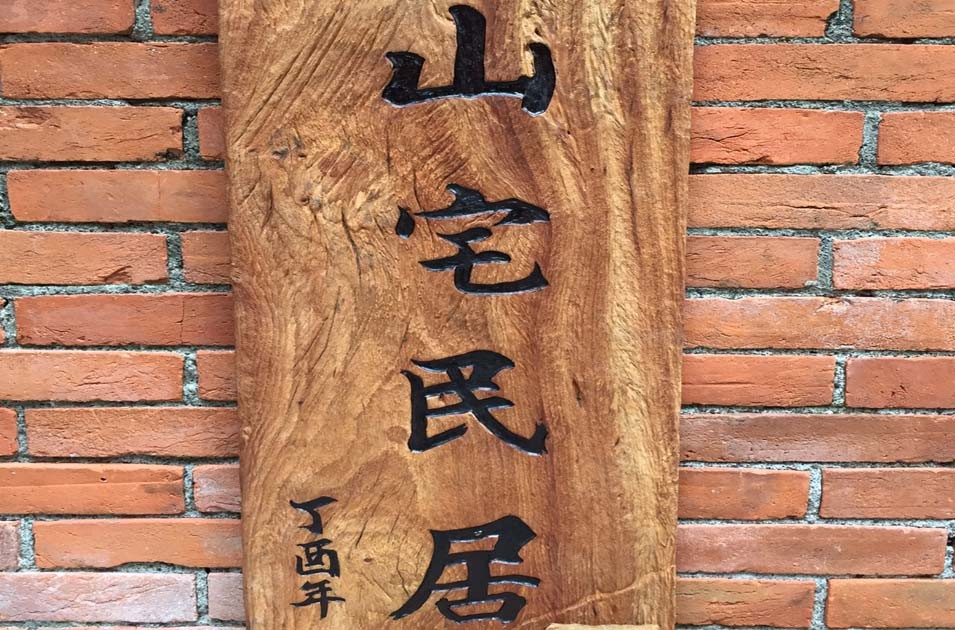 山宅民居
丁酉年